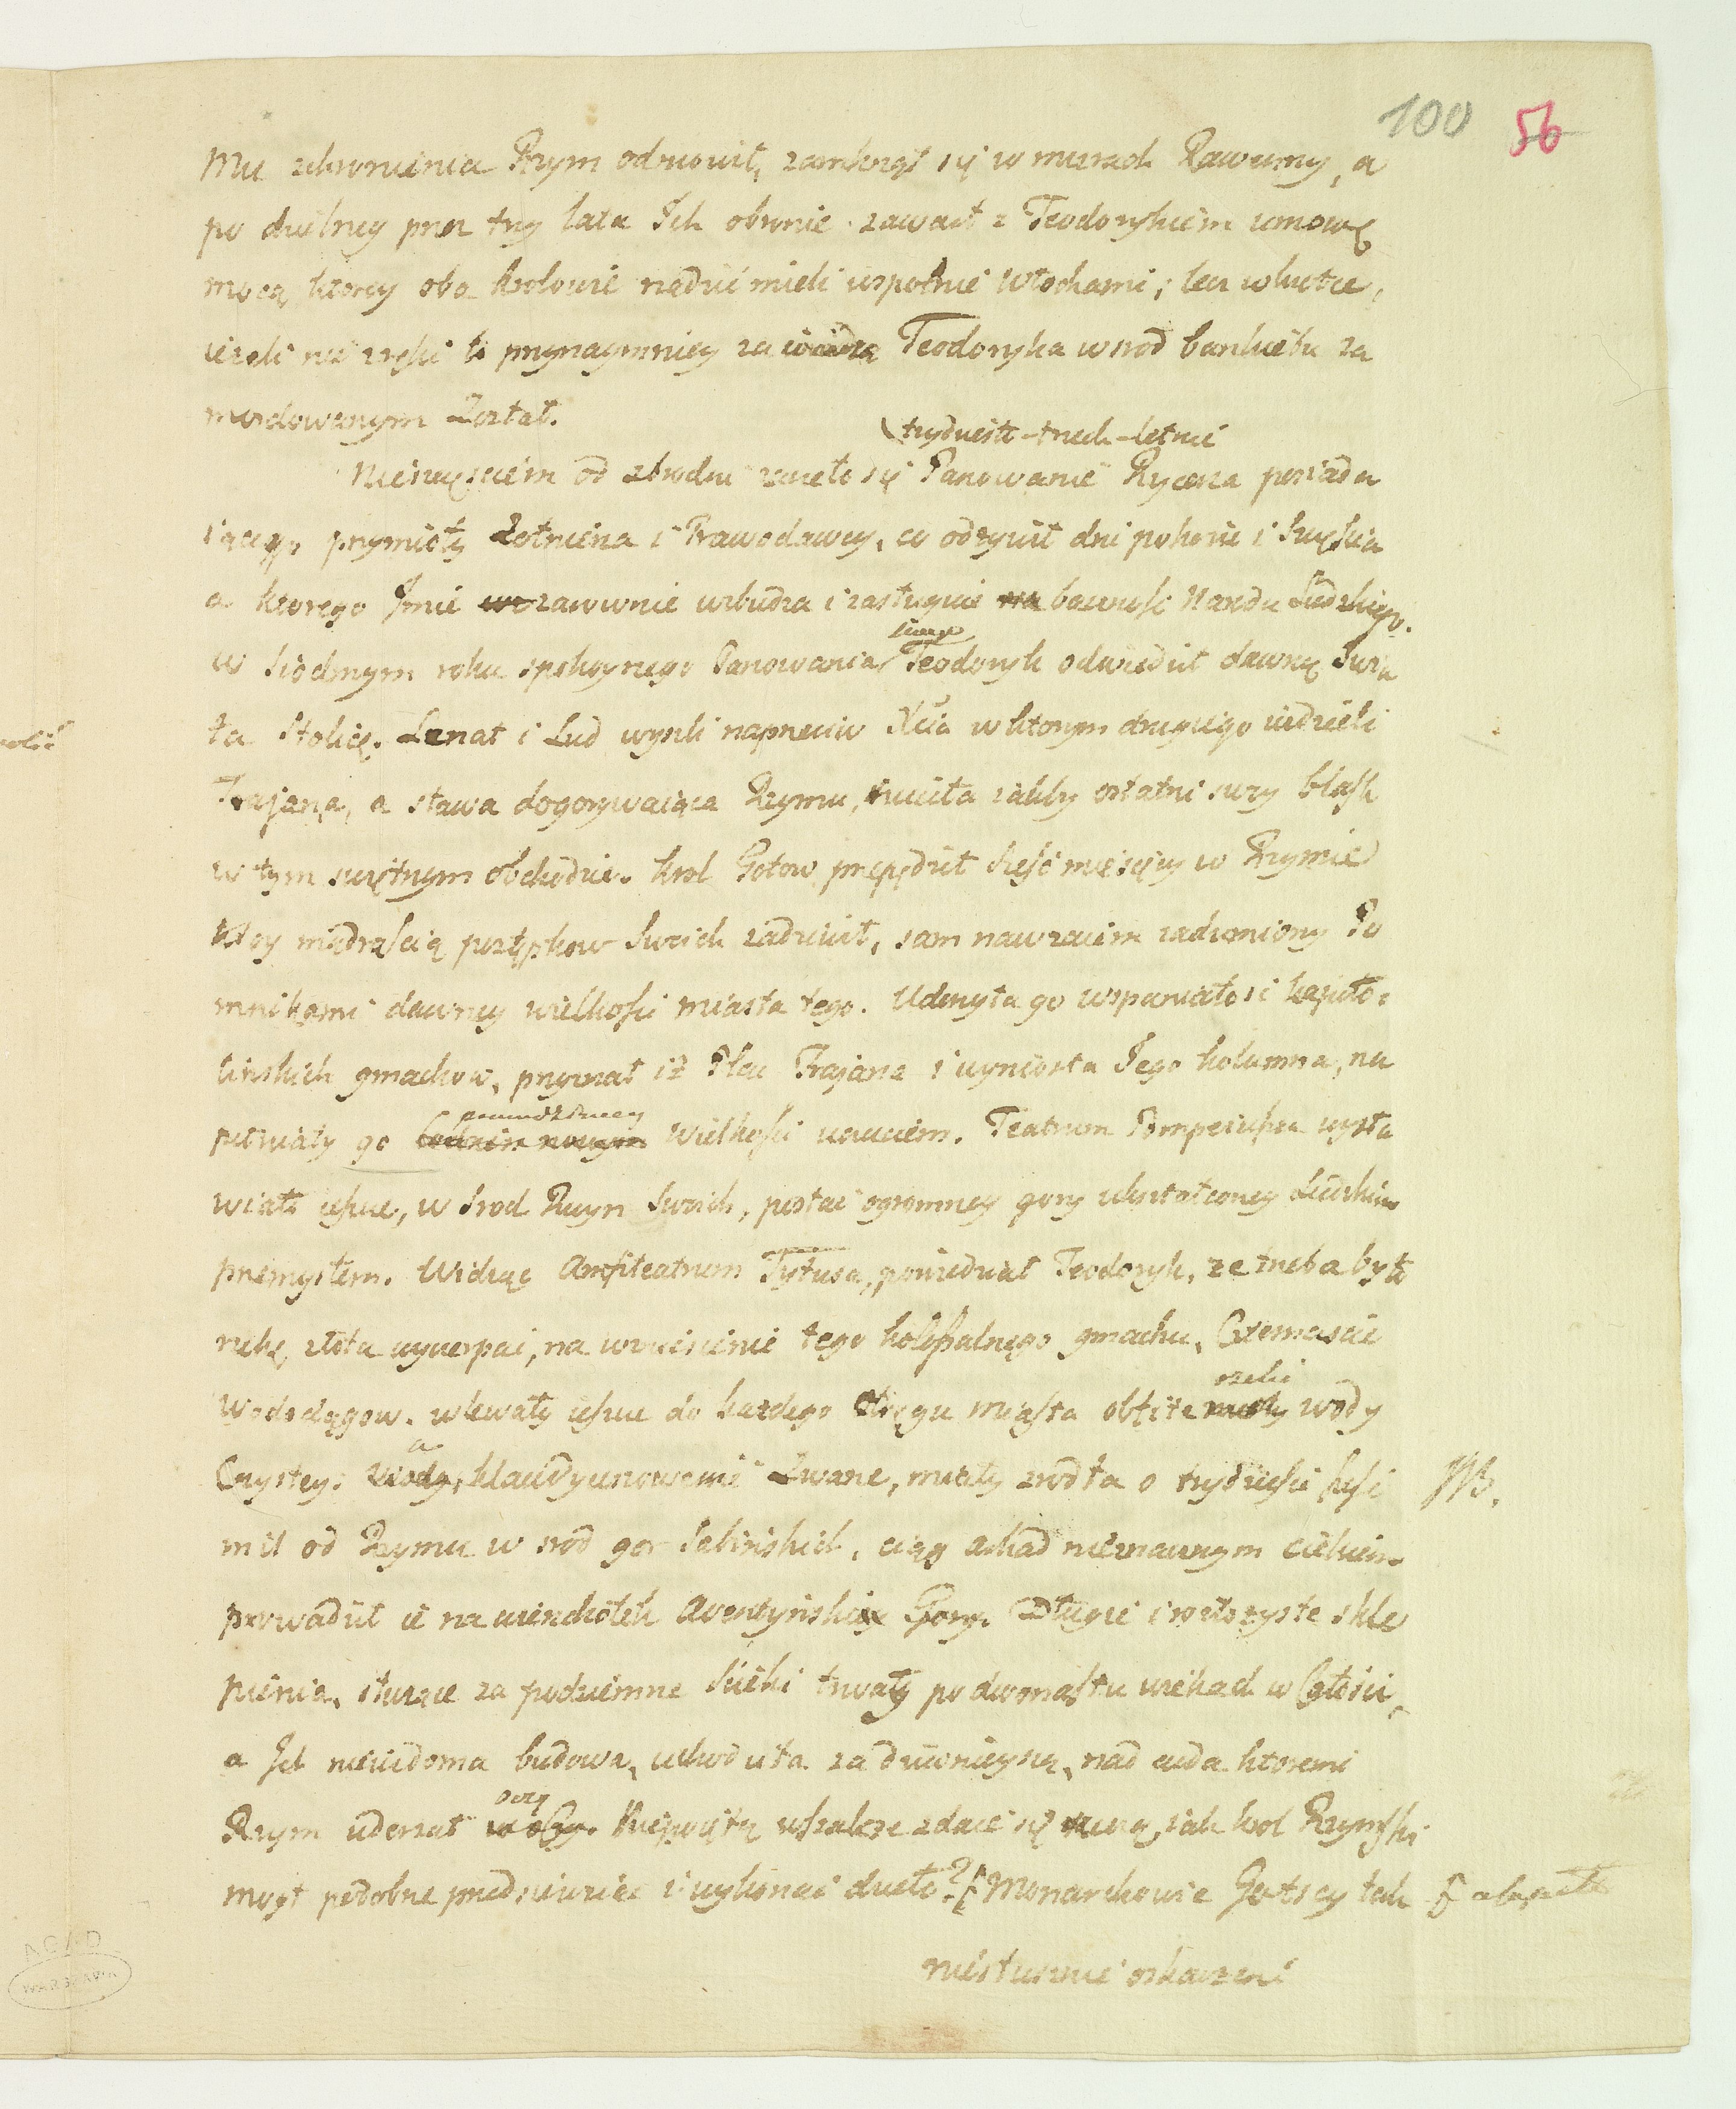 100 56
Mu schronienia Rzym odmowił, zamknął się w murach Rawenny, a
po dzielney przez trzy lata Ich obronie zawarł z Teodorykiem umowę
mocą ktorey oba Krolowie rządzić mieli wspolnie Włochami; lecz wkrotce,
ieżeli nie z ręki to przynaymniey za Teodoryka wsrod bankietu za
mordowanym Został.
trzydziesto-trzech-letnie
Nieszczęściem od zbrodni zaczęło się Panowanie Rycerza posiada
iącego przymioty Żołnierza i Prawodawcy, co odżywił dni pokoiu i Szczęścia
a ktorego Imie zarownie wzbudza i zasługuie na baczność Narodu Ludzkiego.
swego
w Siodmym roku spokoynego Panowania Teodoryk odwiedził dawną Swia
ta Stolicę. Senat i Lud wyszli naprzeciw Xcia w ktorym drugiego widzieli
Trajana, a sława dogorywaiąca Rzymu, rzuciła iakby ostatni swoy blask
w tym swietnym obchodzie. Krol Gotow przepędził sześć miesięcy w Rzymie
ktory mądrością postępkow Swoich zadziwił, sam nawzaiem zadumiony Po
mnikami dawney wielkości miasta tego. Uderzyła go wspaniałość kapito-
lińskich gmachow, przyznał iż Plac Trajana i wyniosła Jego kolumna, na
prawdziwey
pełniały go wielkości uczuciem. Teatrum Pompeiusza wysta
wiało ieszcze, w Srod Ruyn Swoich, postać ogromney gory wykształconey Ludzkim
przemysłem. Widząc Amfiteatrum Tytusa, powiedział Teodoryk, że trzeba było
rzekę złota wyczerpać, na wzniesienie tego kolossalnego gmachu. Czternaście
rzeki
Wodociągow wlewały ieszcze do każdego okręgu miasta obfite wody
a
Czystey: Wody, klaudyanowemi Zwane, miały zrodła o trzydzieści sześć NB.
mil od Rzymu w srod gor Sabińskich, ciąg zkąd nieznacznym ciekiem
prowadził ie na wierzchołek Awentyńskiey Gory. Długie i rozłożyste skle
pienia, służące za podziemne Scieki trwały po dwonastu wiekach w Całości,
a Ich niewidoma budowa, uchodziła za dziwnieyszą, nad cuda ktoremi
oczy
Rzym uderzał Niepoiętą wszakże zdaie się rzeczą, iak krol Rzymski
mogł podobne przedsiewziąć i wykonać dzieło? Monarchowie Gotscy tak
niesłusznie oskarzeni
AGAD
WARSZAWA